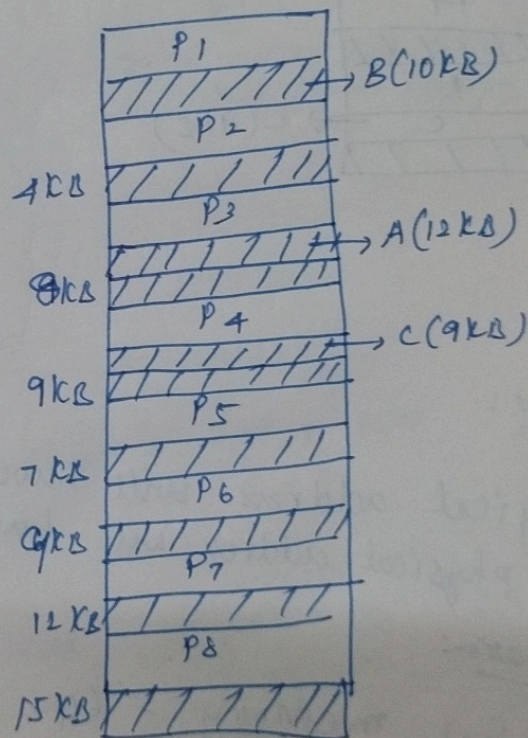 P1
B(10KB)
P2
4KB
P3
A(12KB)
8KB
P4
C(9KB)
9KB
P5
7KB
P6
9KB
P7
12KB
P8
15KB